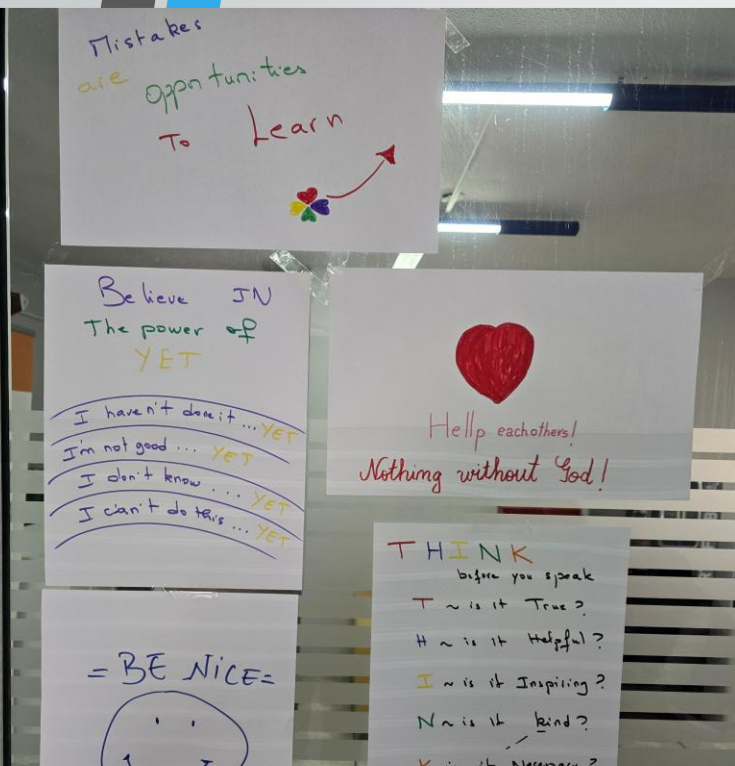 Mistakes
are Oppntunities
To Learn
Believe IN
The power of
YET
I haven't done it ... YET
I'm not good ... YET
I don't know ... YET
I can't do this ... YET
Hellp eachothers!
Nothing without God!
THINK
before you speak
T ~ is it True?
H ~ is it Helpful?
I ~ is it Inspiring?
N ~ is it kind?
K ~ is it Necessary?
= BE NiCE =